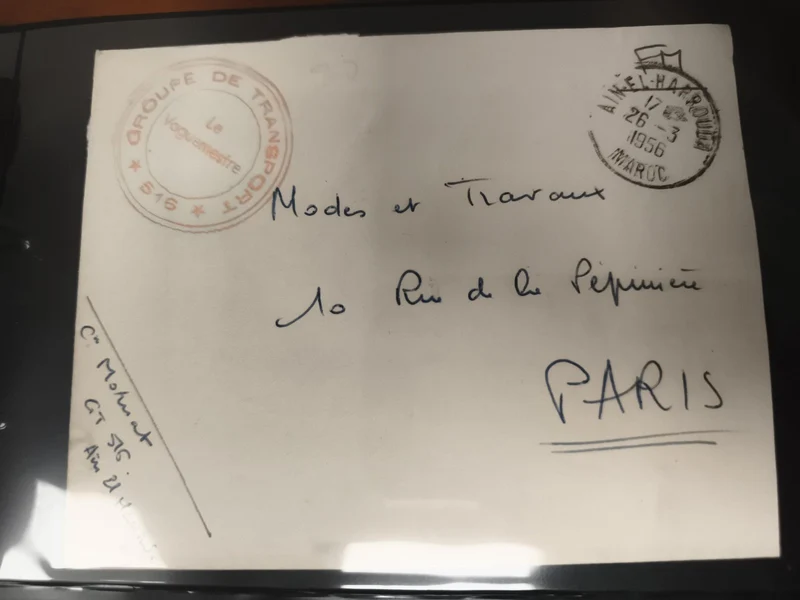 GROUPE DE TRANSPORT
★ 516 ★
Le
Vaguemestre
FM
AIN-EL-HARROUDA
17
26-3
1956
MAROC
Modes et Travaux
10 Rue de la Pépinière
PARIS
GT 516.
Ain El